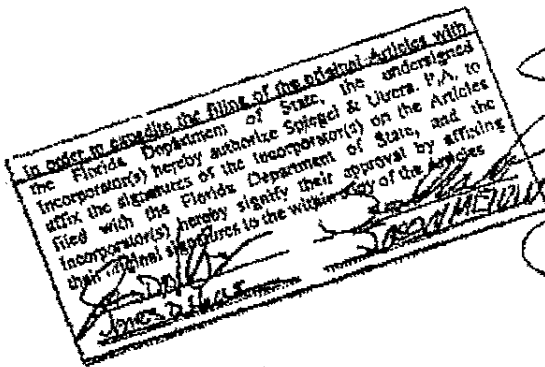 In order to expedite the filing of the original Articles with
the Florida Department of State, the undersigned
Incorporator(s) hereby authorize Spiegel & Utrera, P.A. to
affix the signatures of the Incorporator(s) on the Articles
filed with the Florida Department of State, and the
Incorporator(s) hereby signify their approval by affixing
their original signatures to the within copy of the Articles
James D.
Jason